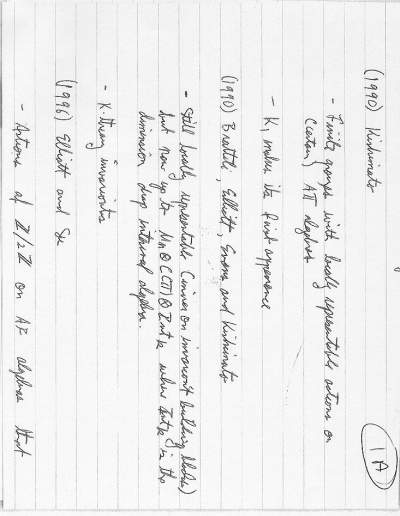 1A
(1990) Kishimoto
- Finite groups with locally representable actions on
(certain) AT algebras
- K₁ makes its first appearance
(1990) Bratteli, Elliott, Evans and Kishimoto
- Still locally representable (inner on invariant building blocks)
but now up to Mn ⊗ C(T) ⊗ Int k where Int k is the
dimension drop interval algebra.
- K-theory invariants
(1996) Elliott and Su
- Actions of Z/2Z on AF algebras that